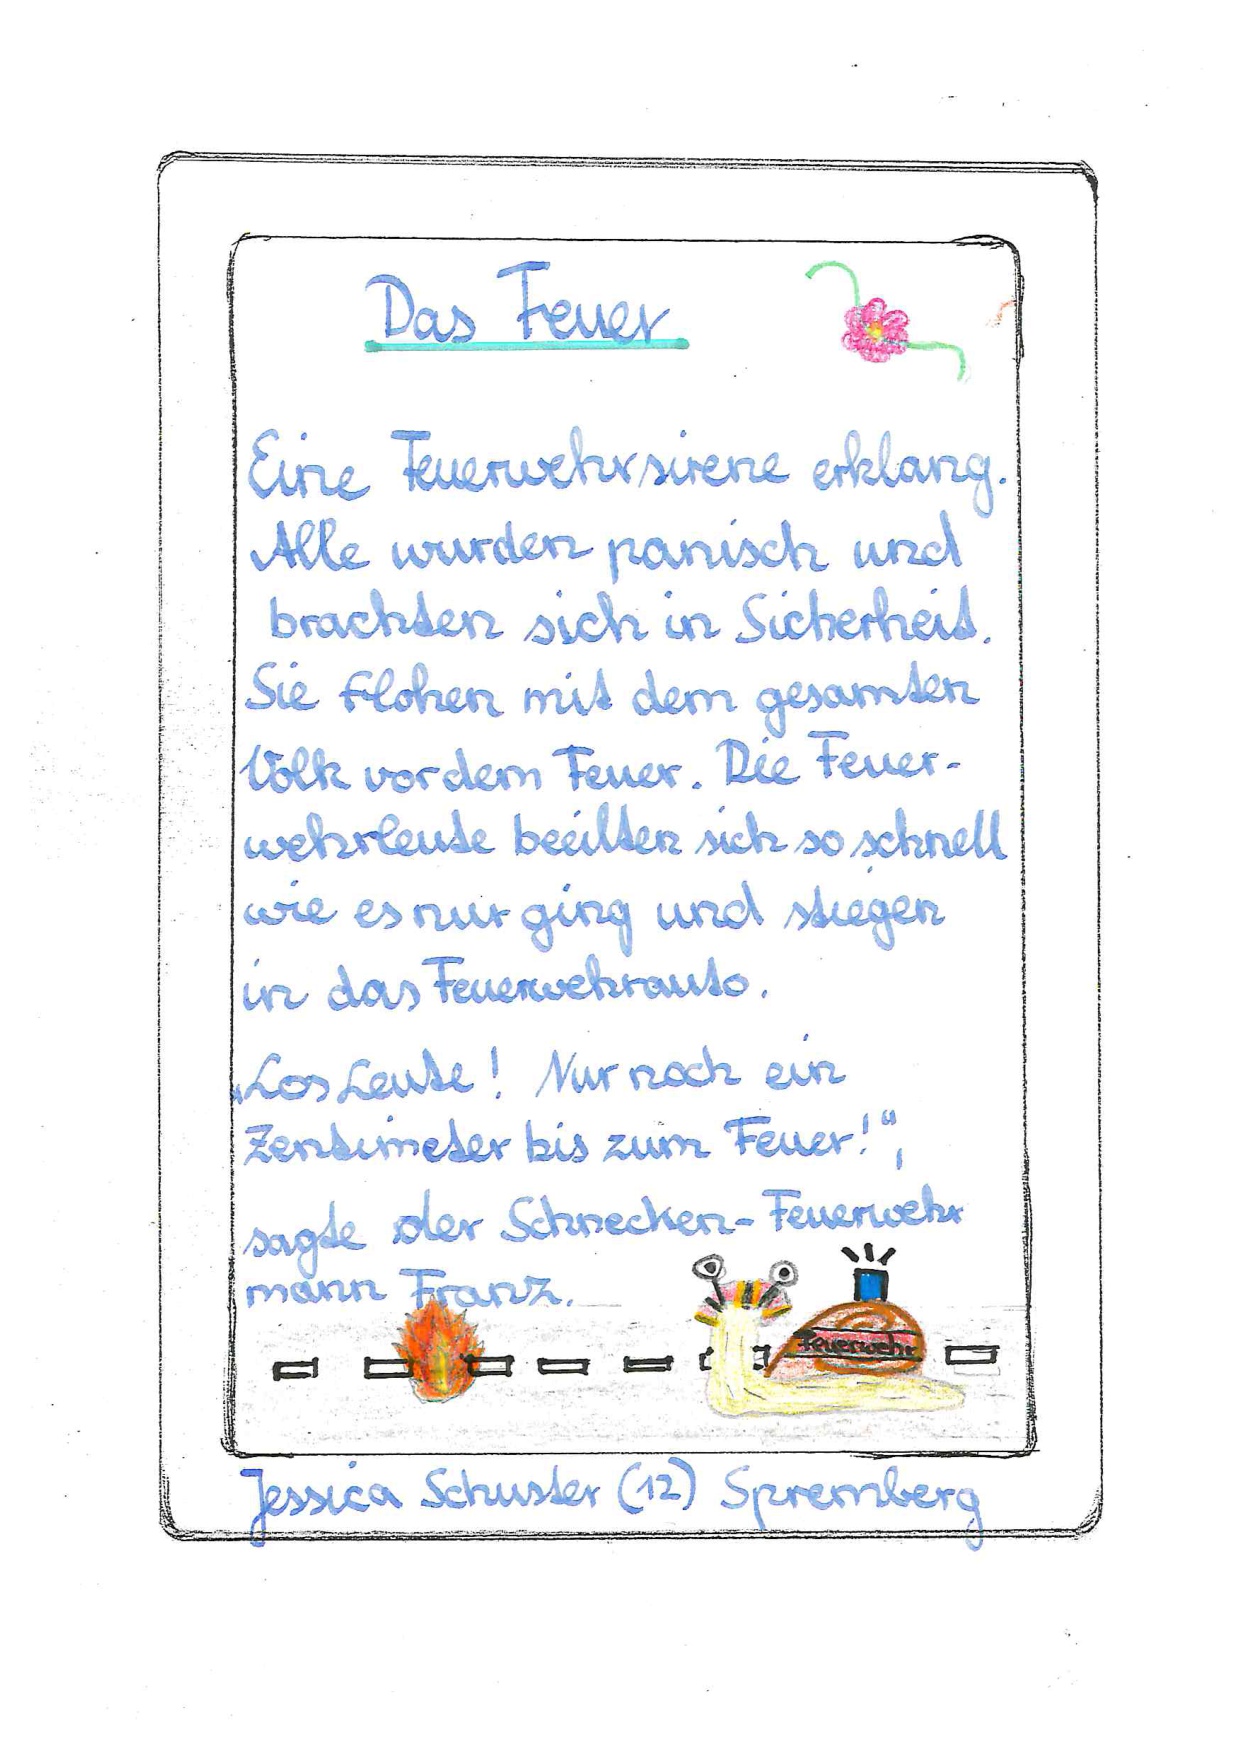 Das Feuer
Eine Feuerwehrsirene erklang.
Alle wurden panisch und
brachten sich in Sicherheit.
Sie flohen mit dem gesamten
Volk vor dem Feuer. Die Feuer-
wehrleute beeilten sich so schnell
wie es nur ging und stiegen
in das Feuerwehrauto.
„Los Leute! Nur noch ein
Zentimeter bis zum Feuer!“,
sagte der Schnecken-Feuerwehr
mann Franz.
Feuerwehr
Jessica Schuster (12) Spremberg